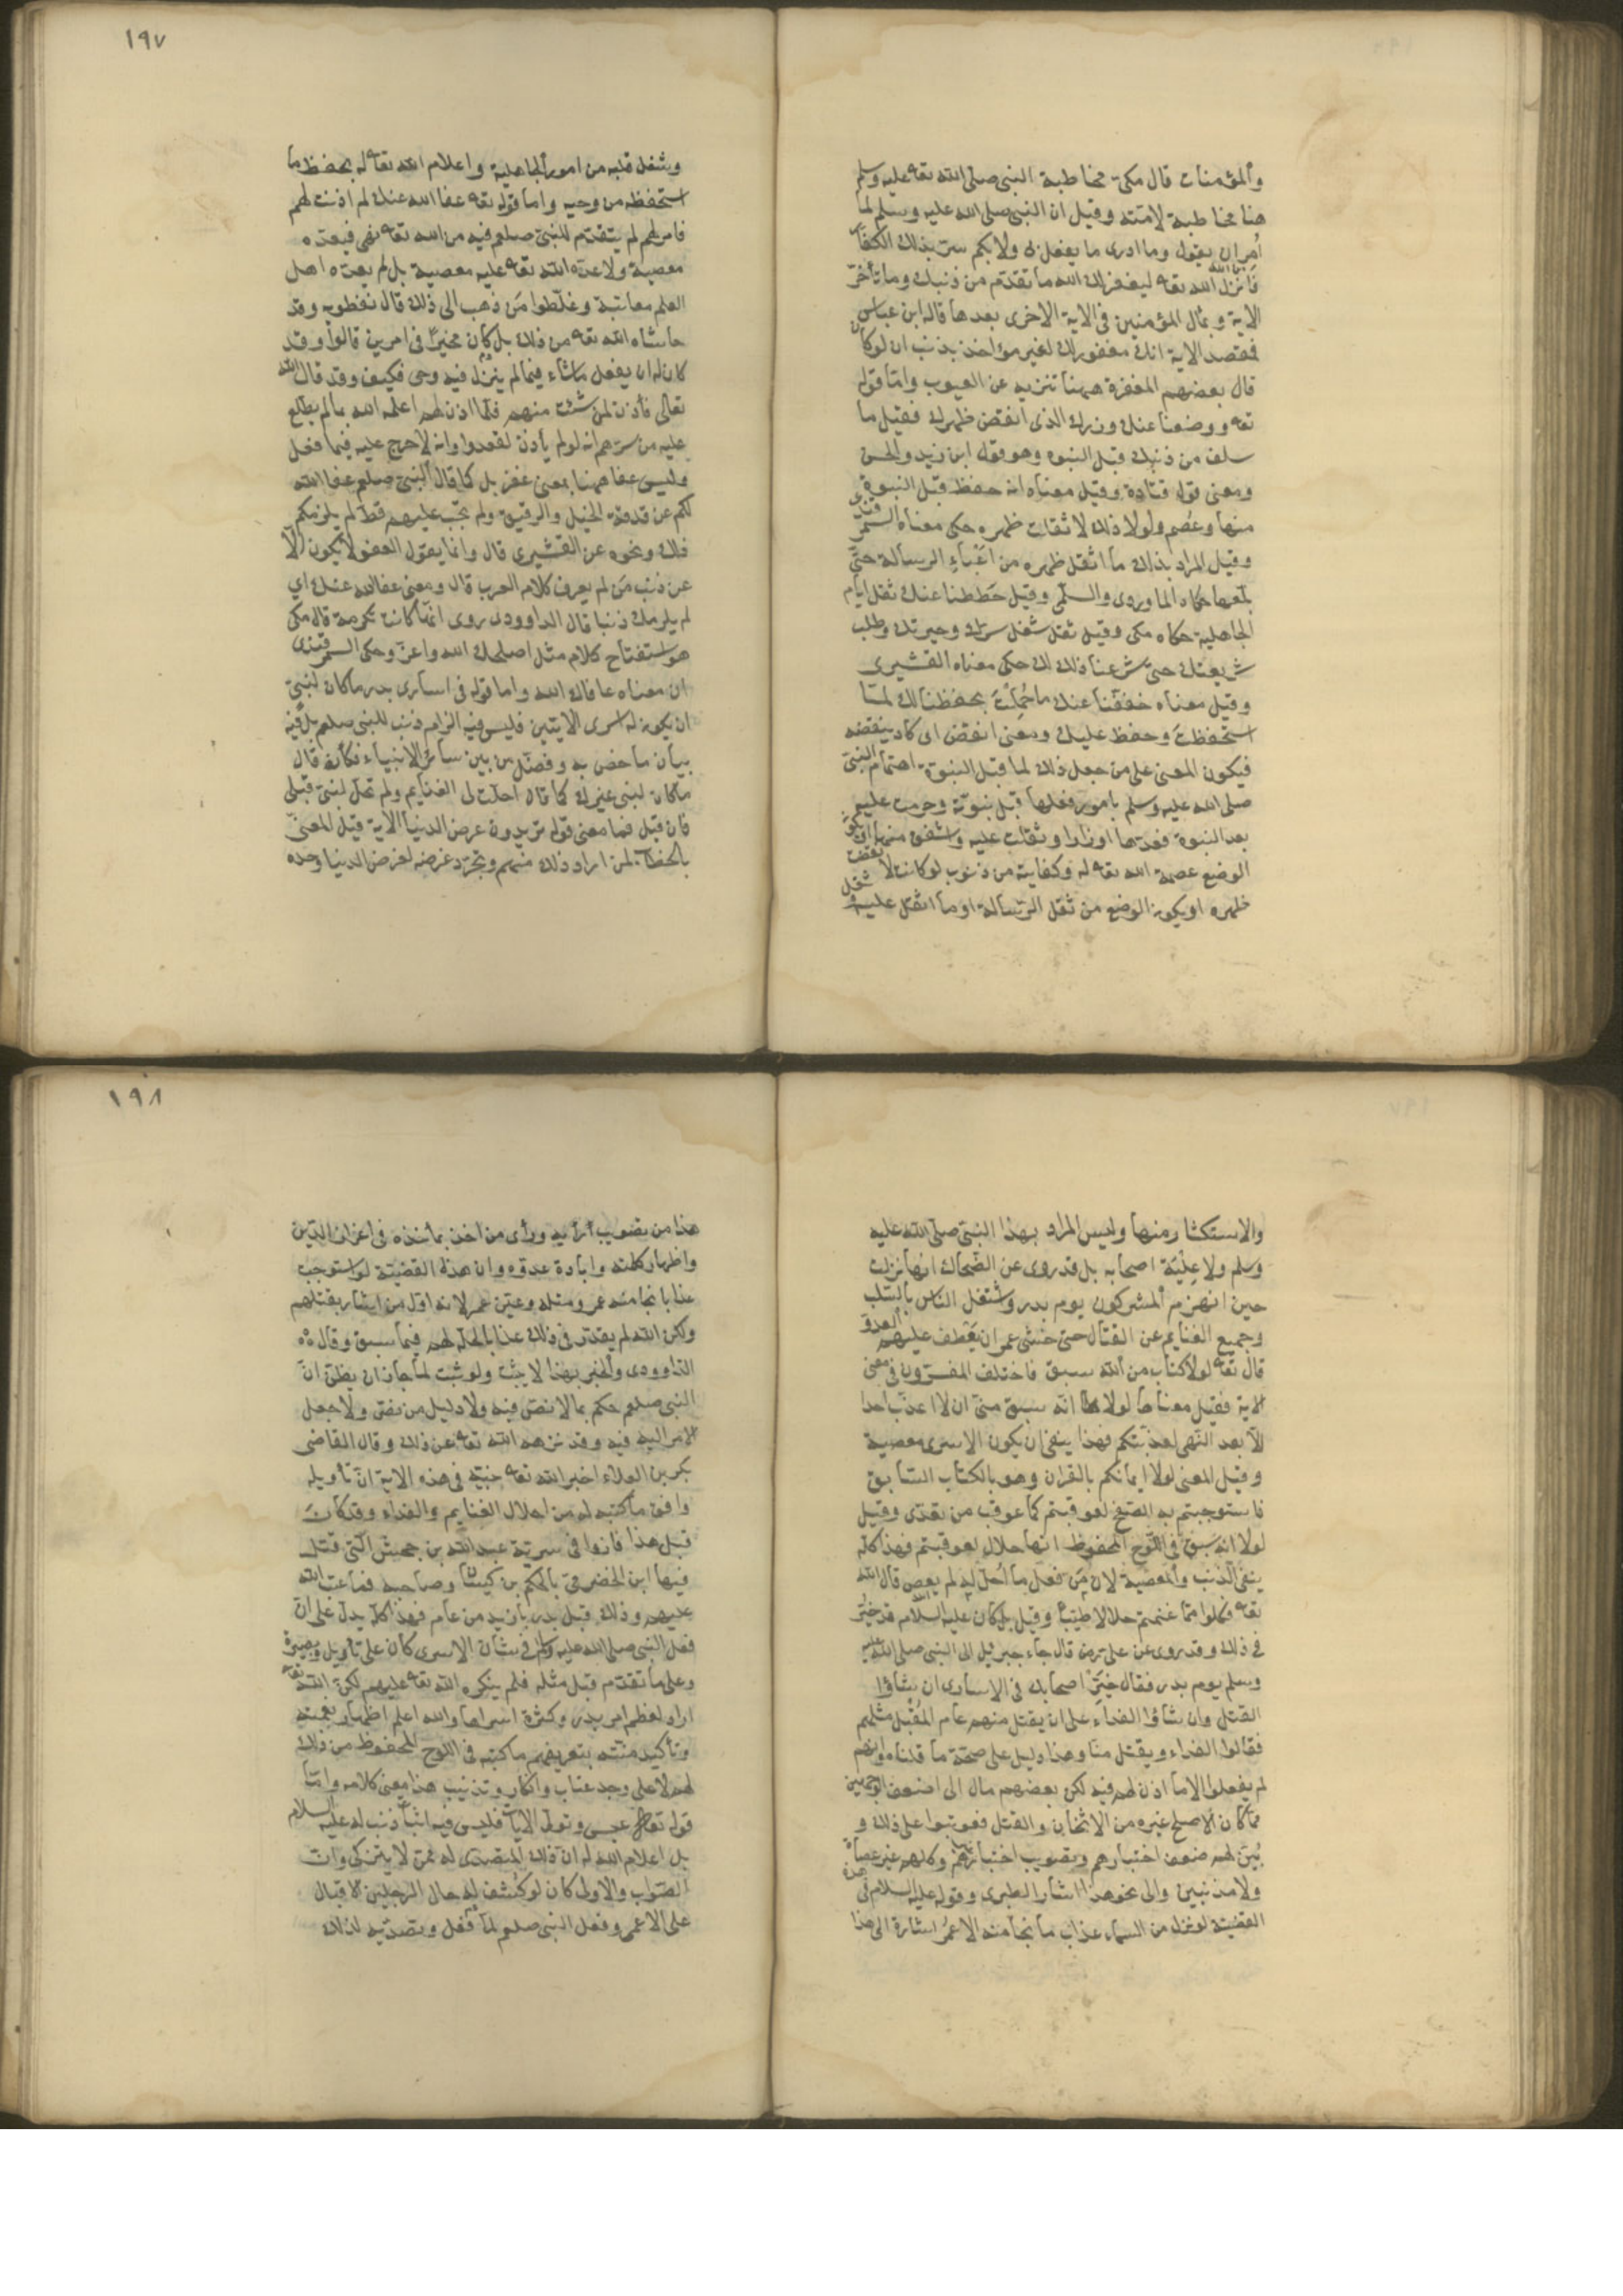 والمؤمنات قال مكى مخاطبة النبى صلى الله تعه عليه وسلم
هنا مخاطبة لامته وقيل ان النبى صلى الله عليه وسلم لما
أمر ان يقول وما ادرى ما يفعل بى ولا بكم سر بذلك الكفار
فانزل الله تعه ليغفر لك الله ما تقدم من ذنبك وما تأخر
الاية وبمآل المؤمنين فى الاية الاخرى بعدها قاله ابن عباس
فمقصد الاية انك مغفور لك لغير مؤاخذ بذنب ان لو كان
قال بعضهم المغفرة ههنا تنزيه عن العيوب واما قوله
تعه ووضعنا عنك وزرك الذى انقض ظهرك فقيل ما
سلف من ذنبك قبل النبوه وهو قول ابن زيد والحسن
ومعنى قول قتادة وقيل معناه انه حفظ قبل النبوة
منها وعصم ولولا ذلك لاثقلت ظهره حكى معناه السمرقندى
وقيل المراد بذلك ما اثقل ظهره من اعباء الرسالة حتى
بلغها حكاه الماوردى والسلمى وقيل حططنا عنك ثقل ايام
الجاهلية حكاه مكى وقيل ثقل شغل سرك وحيرتك وطلب
شريعتك حتى شرعنا ذلك لك حكى معناه القشيرى
وقيل معناه خففنا عنك ما حملت بحفظنا لك لما
استحفظت وحفظ عليك ومعنى انقض اى كاد ينقضه
فيكون المعنى على من جعل ذلك لما قبل النبوة اهتمام النبى
صلى الله عليه وسلم بامور فعلها قبل نبوته وحرمت عليه
بعد النبوة فعدها اوزارا وثقلت عليه واشفق منها او يكون
الوضع عصمة الله تعه له وكفايته من ذنوب لو كانت لانقضت
ظهره او يكون الوضع من ثقل الرسالة او ما اثقل عليه
وشغل قلبه من امور الجاهلية واعلام الله تعه له بحفظ ما
استحفظه من وحيه واما قوله تعه عفا الله عنك لم اذنت لهم
فامر لهم لم يتقدم للنبى صلعم فيه من الله تعه نهى فيعده
معصية ولا عده الله تعه عليه معصية بل لم يعده اهل
العلم معاتبة وغلطوا من ذهب الى ذلك قال نفطويه وقد
حاشاه الله تعه من ذلك بل كان مخيرا فى امرين قالوا وقد
كان له ان يفعل ما شاء فيما لم ينزل فيه وحى فكيف وقد قال الله
تعالى فأذن لمن شئت منهم فلما اذن لهم اعلمه الله بما لم يطلع
عليه من سرهم انه لو لم يأذن لقعدوا وانه لا حرج عليه فيما فعل
وليس عفا ههنا بمعنى غفر بل كما قال النبى صلعم عفا الله
لكم عن صدقة الخيل والرقيق ولم تجب عليهم قط لم يلزمكم
ذلك ونحوه عن القشيرى قال وانما يقول العفو لا يكون الا
عن ذنب من لم يعرف كلام العرب قال ومعنى عفا الله عنك اى
لم يلزمك ذنبا قال الداوودى روى انها كانت تكرمة قال مكى
هو استفتاح كلام مثل اصلحك الله واعز وحكى السمرقندى
ان معناه عافاك الله واما قوله فى اسارى بدر ما كان لنبى
ان يكون له اسرى الايتين فليس فيه الزام ذنب للنبى صلعم بل فيه
بيان ما خص به وفضل من بين سائر الانبياء فكأنه قال
ما كان لنبى غيرك كما قال احلت لى الغنايم ولم تحل لنبى قبلى
فان قيل فما معنى قوله تريدون عرض الدنيا الاية قيل المعنى
بالخطاب لمن اراد ذلك منهم وتجرد غرضه لغرض الدنيا وحده
والاستكثار منها وليس المراد بهذا النبى صلى الله عليه
وسلم ولا علية اصحابه بل قد روى عن الضحاك انها نزلت
حين انهزم المشركون يوم بدر واشتغل الناس بالسلب
وجميع الغنايم عن القتال حتى خشى عمر ان يعطف عليهم العدو
قال تعه لولا كتاب من الله سبق فاختلف المفسرون فى معنى
الاية فقيل معناها لولا انه سبق منى ان لا اعذب احدا
الا بعد النهى لعذبتكم فهذا ينفى ان يكون الاسرى معصية
وقيل المعنى لولا ايمانكم بالقران وهو بالكتاب السابق
فاستوجبتم به الصفح لعوقبتم كما عوقب من تعدى وقيل
لولا انه سبق فى اللوح المحفوظ انها حلال لعوقبتم فهذا كله
ينفى الذنب والمعصية لان من فعل ما احل له لم يعص قال الله
تعه فكلوا مما غنمتم حلالا طيبا وقيل بل كان عليه السلام قد خير
فى ذلك وقد روى عن على رض قال جاء جبريل الى النبى صلى الله عليه
وسلم يوم بدر فقال خير اصحابك فى الاسارى ان شاؤا
القتل وان شاؤا الفداء على ان يقتل منهم عام المقبل مثلهم
فقالوا الفداء ويقتل منا وهذا دليل على صحة ما قلناه وانهم
لم يفعلوا الا ما اذن لهم فيه لكن بعضهم مال الى اضعف الوجهين
مما كان الاصلح غيره من الاثخان والقتل فعوتبوا على ذلك و
بين لهم ضعف اختيارهم وتصويب اختيار غيرهم وكلهم غير عصاة
ولا مذنبين والى نحو هذا اشار الطبرى وقوله عليه السلام فى هذه
القضية لو نزل من السماء عذاب ما نجا منه الا عمر اشارة الى هذا
هذا من تصويب رأيه ورأى من اخذ بمأخذه فى اعزاز الدين
واظهار كلمته وابادة عدوه وان هذه القضية لو استوجبت
عذابا نجا منه عمر ومثله وعين عمر لانه اول من اشار بقتلهم
ولكن الله لم يقدر فى ذلك عذابا لحله لهم فيما سبق وقال
الداوودى والخبر بهذا لا يثبت ولو ثبت لما جاز ان يظن ان
النبى صلعم حكم بما لا نص فيه ولا دليل من نص ولا جعل
الامر اليه فيه وقد نزهه الله تعه عن ذلك وقال القاضى
بكر بن العلاء اخبر الله تعه نبيه فى هذه الاية ان تأويله
وافق ما كتبه له من احلال الغنايم والفداء وقد كان
قبل هذا فادوا فى سرية عبد الله بن جحش التى قتل
فيها ابن الحضرمى بالحكم بن كيسان وصاحبه فما عتب الله
عليهم وذلك قبل بدر بازيد من عام فهذا كله يدل على ان
فعل النبى صلى الله عليه وسلم فى شان الاسرى كان على تأويل وبصيرة
وعلى ما تقدم قبل مثله فلم ينكره الله تعه عليهم لكن الله تعه
اراد لعظم امر بدر وكثرة اسراها والله اعلم اظهار نعمته
وتأكيد منته بتعريفهم ما كتبه فى اللوح المحفوظ من ذلك
لهم لا على وجه عتاب وانكار وتذنيب هذا معنى كلامه واما
قوله تعه عبس وتولى الايات فليس فيه اثبات ذنب له عليه السلام
بل اعلام الله له ان ذلك المتصدى له ممن لا يتزكى وان
الصواب والاولى كان لو كشف له حال الرجلين الاقبال
على الاعمى وفعل النبى صلعم لما فعل وتصديه لذلك
١٩٧
١٩٨